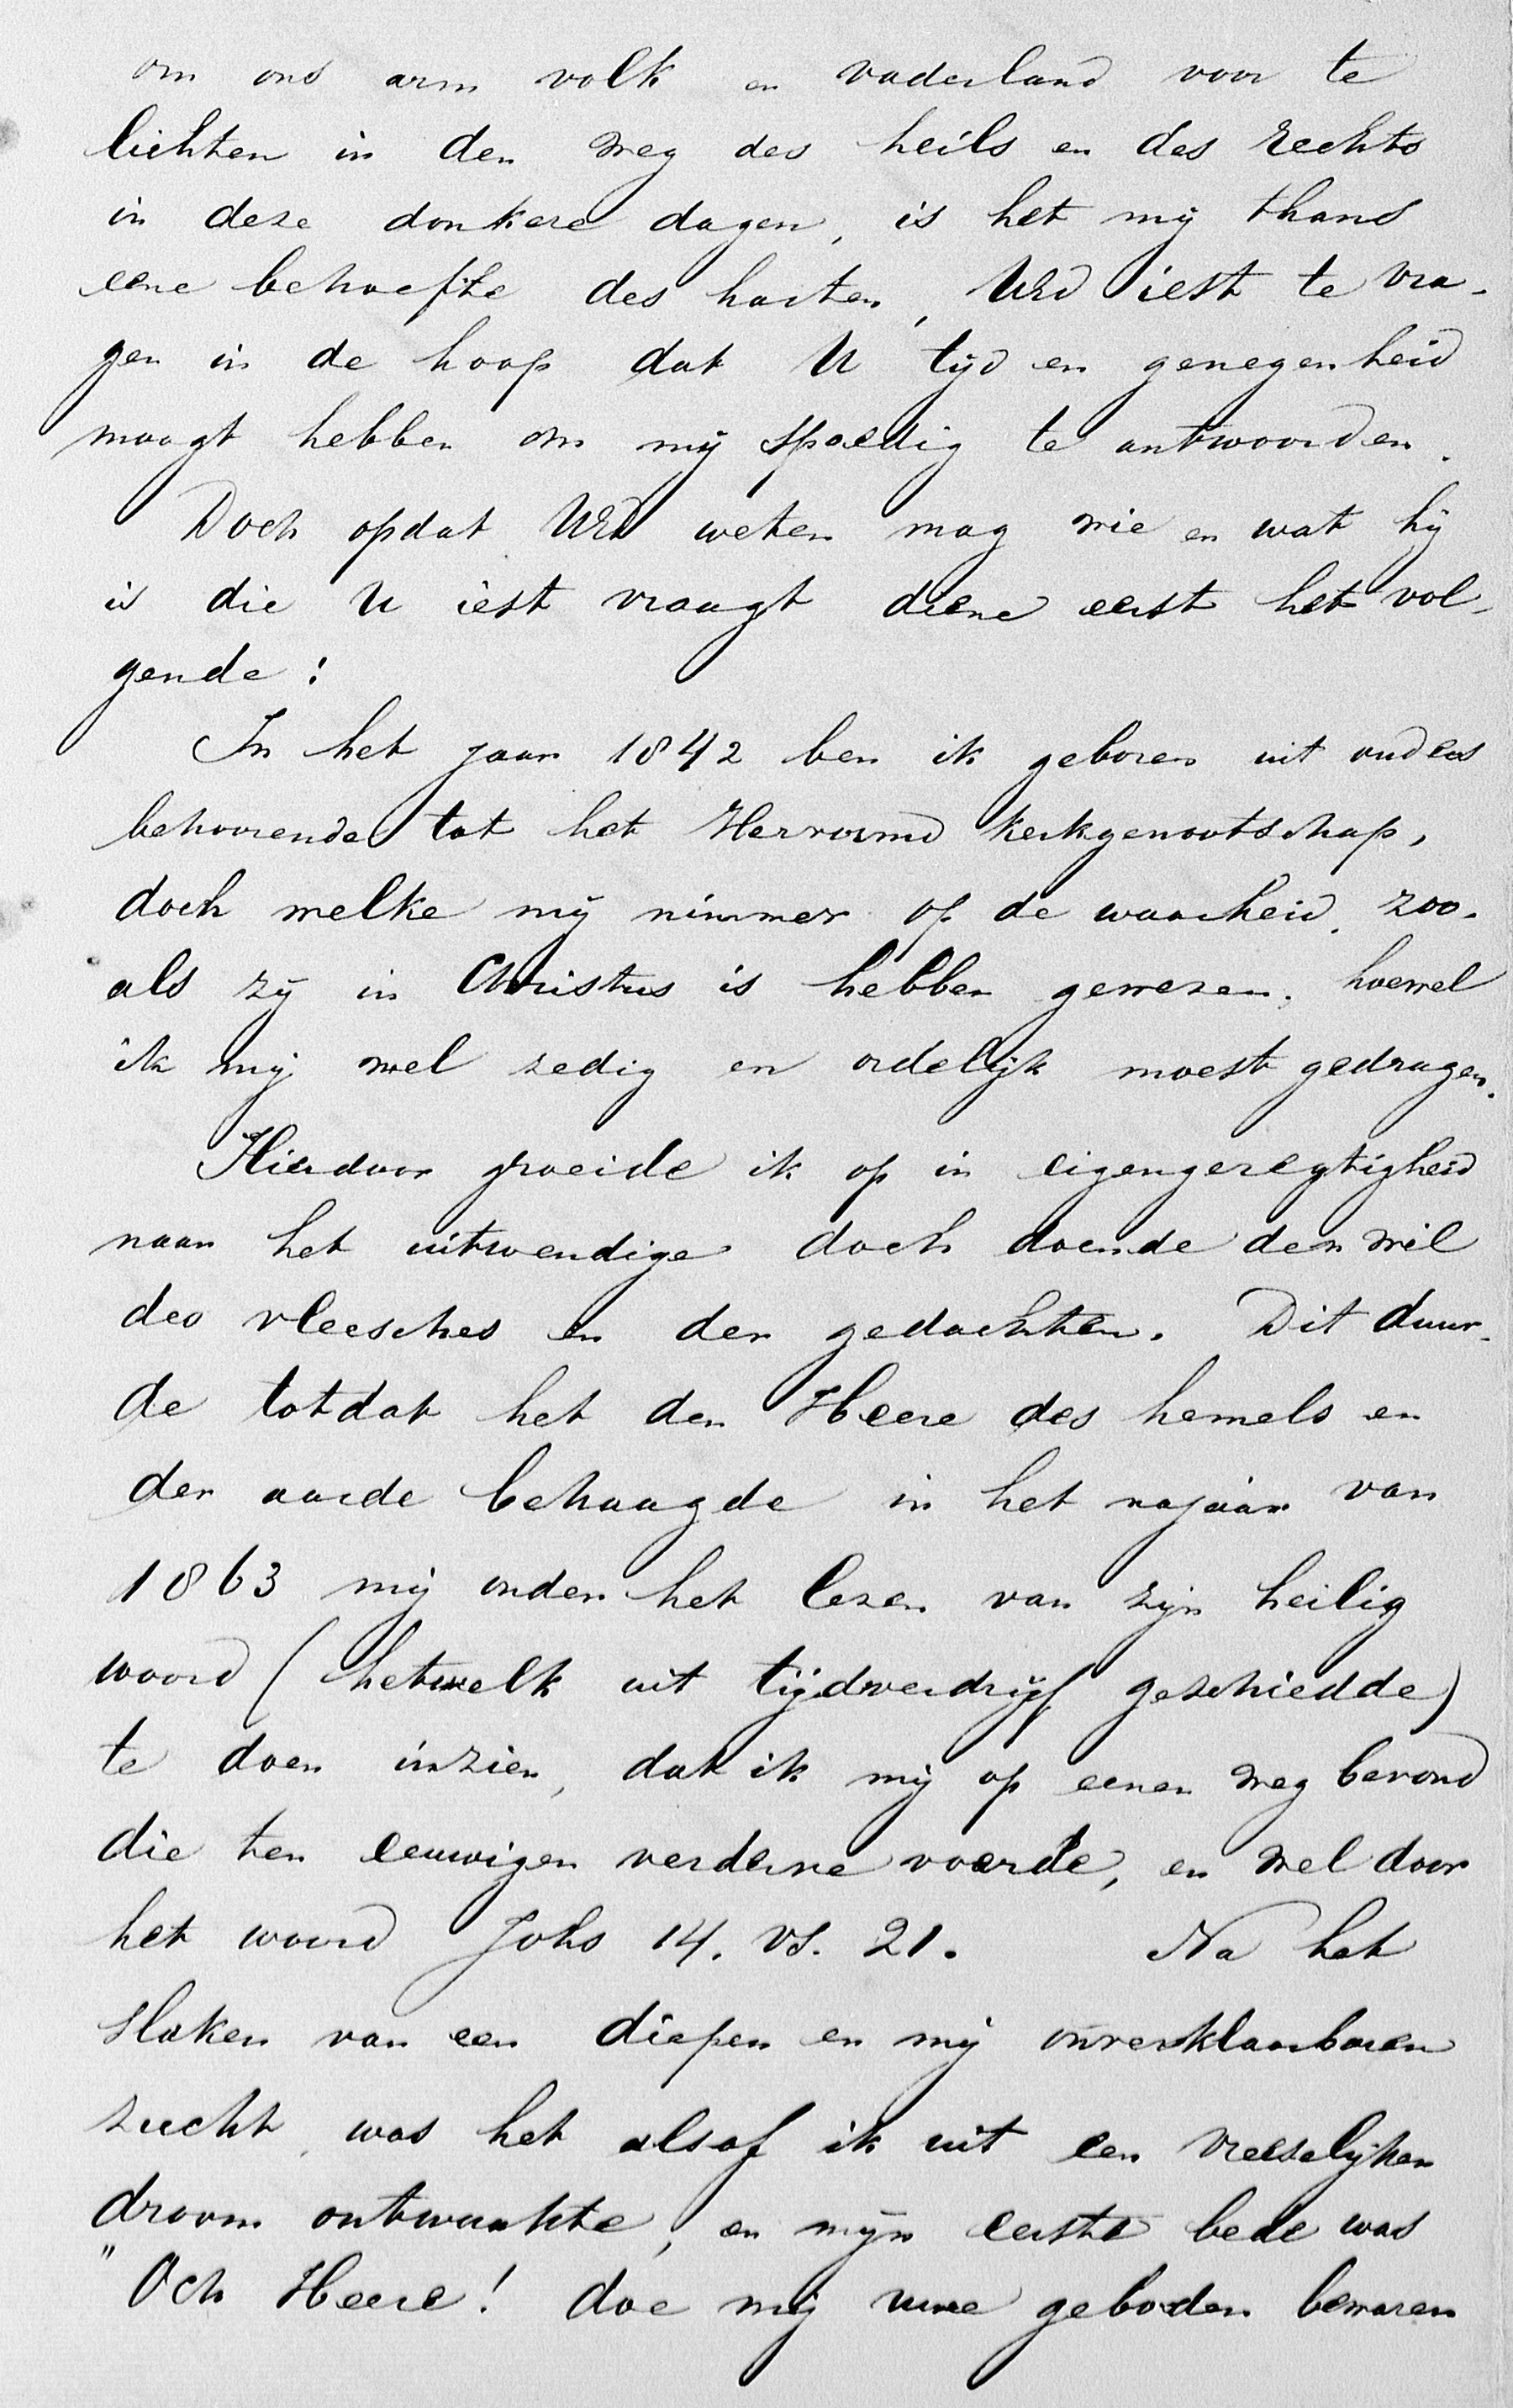 om ons arm volk en vaderland voor te
lichten in den weg des heils en des rechts
in deze donkere dagen, is het mij thans
eene behoefte des harten, UEd iest te vra-
gen in de hoop dat U tijd en genegenheid
moogt hebben om mij spoedig te antwoorden.
Doch opdat UEd weten mag wie en wat hij
is die U iest vraagt diene eerst het vol-
gende:
In het jaar 1842 ben ik geboren uit ouders
behoorende tot het Hervormd kerkgenootschap,
doch welke mij nimmer op de waarheid, zoo-
als zij in Christus is hebben gewezen, hoewel
ik mij wel zedig en ordelijk moest gedragen.
Hierdoor groeide ik op in eigengeregtigheid
naar het uitwendige doch doende den wil
des vleesches en der gedachten. Dit duur-
de totdat het den Heere des hemels en
der aarde behaagde in het najaar van
1863 mij onder het lezen van zijn heilig
woord (hetwelk uit tijdverdrijf geschiedde)
te doen inzien, dat ik mij op eenen weg bevond
die ten eeuwigen verderve voerde, en wel door
het woord Johs 14. vs. 21. Na het
slaken van een diepen en mij onverklaarbaren
zucht, was het alsof ik uit een vreeselijken
droom ontwaakte, en mijn eerste bede was
"Och Heere! doe mij uwe geboden bewaren